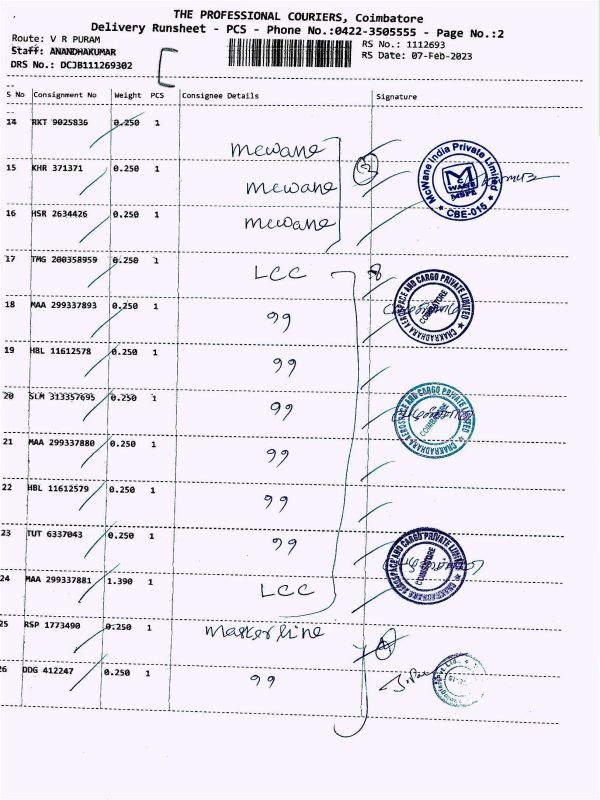 THE PROFESSIONAL COURIERS, Coimbatore
Delivery Runsheet - PCS - Phone No.:0422-3505555 - Page No.:2
Route: V R PURAM
Staff: ANANDHAKUMAR
DRS No.: DCJB111269302
RS No.: 1112693
RS Date: 07-Feb-2023
S No Consignment No Weight PCS Consignee Details Signature
14 RKT 9025836 0.250 1 mcwane
15 KHR 371371 0.250 1 mcwane
16 HSR 2634426 0.250 1 mcwane
McWane India Private Limited
CBE-015
17 TMG 200358959 0.250 1 LCC
18 MAA 299337893 0.250 1 99
CHAKRADHARA AEROSPACE AND CARGO PRIVATE LIMITED
COIMBATORE
19 HBL 11612578 0.250 1 99
20 SLM 313357695 0.250 1 99
CHAKRADHARA AEROSPACE AND CARGO PRIVATE LIMITED
COIMBATORE
21 MAA 299337880 0.250 1 99
22 HBL 11612579 0.250 1 99
23 TUT 6337043 0.250 1 99
CHAKRADHARA AEROSPACE AND CARGO PRIVATE LIMITED
COIMBATORE
24 MAA 299337881 1.390 1 LCC
25 RSP 1773490 0.250 1 masterline
26 DDG 412247 0.250 1 99